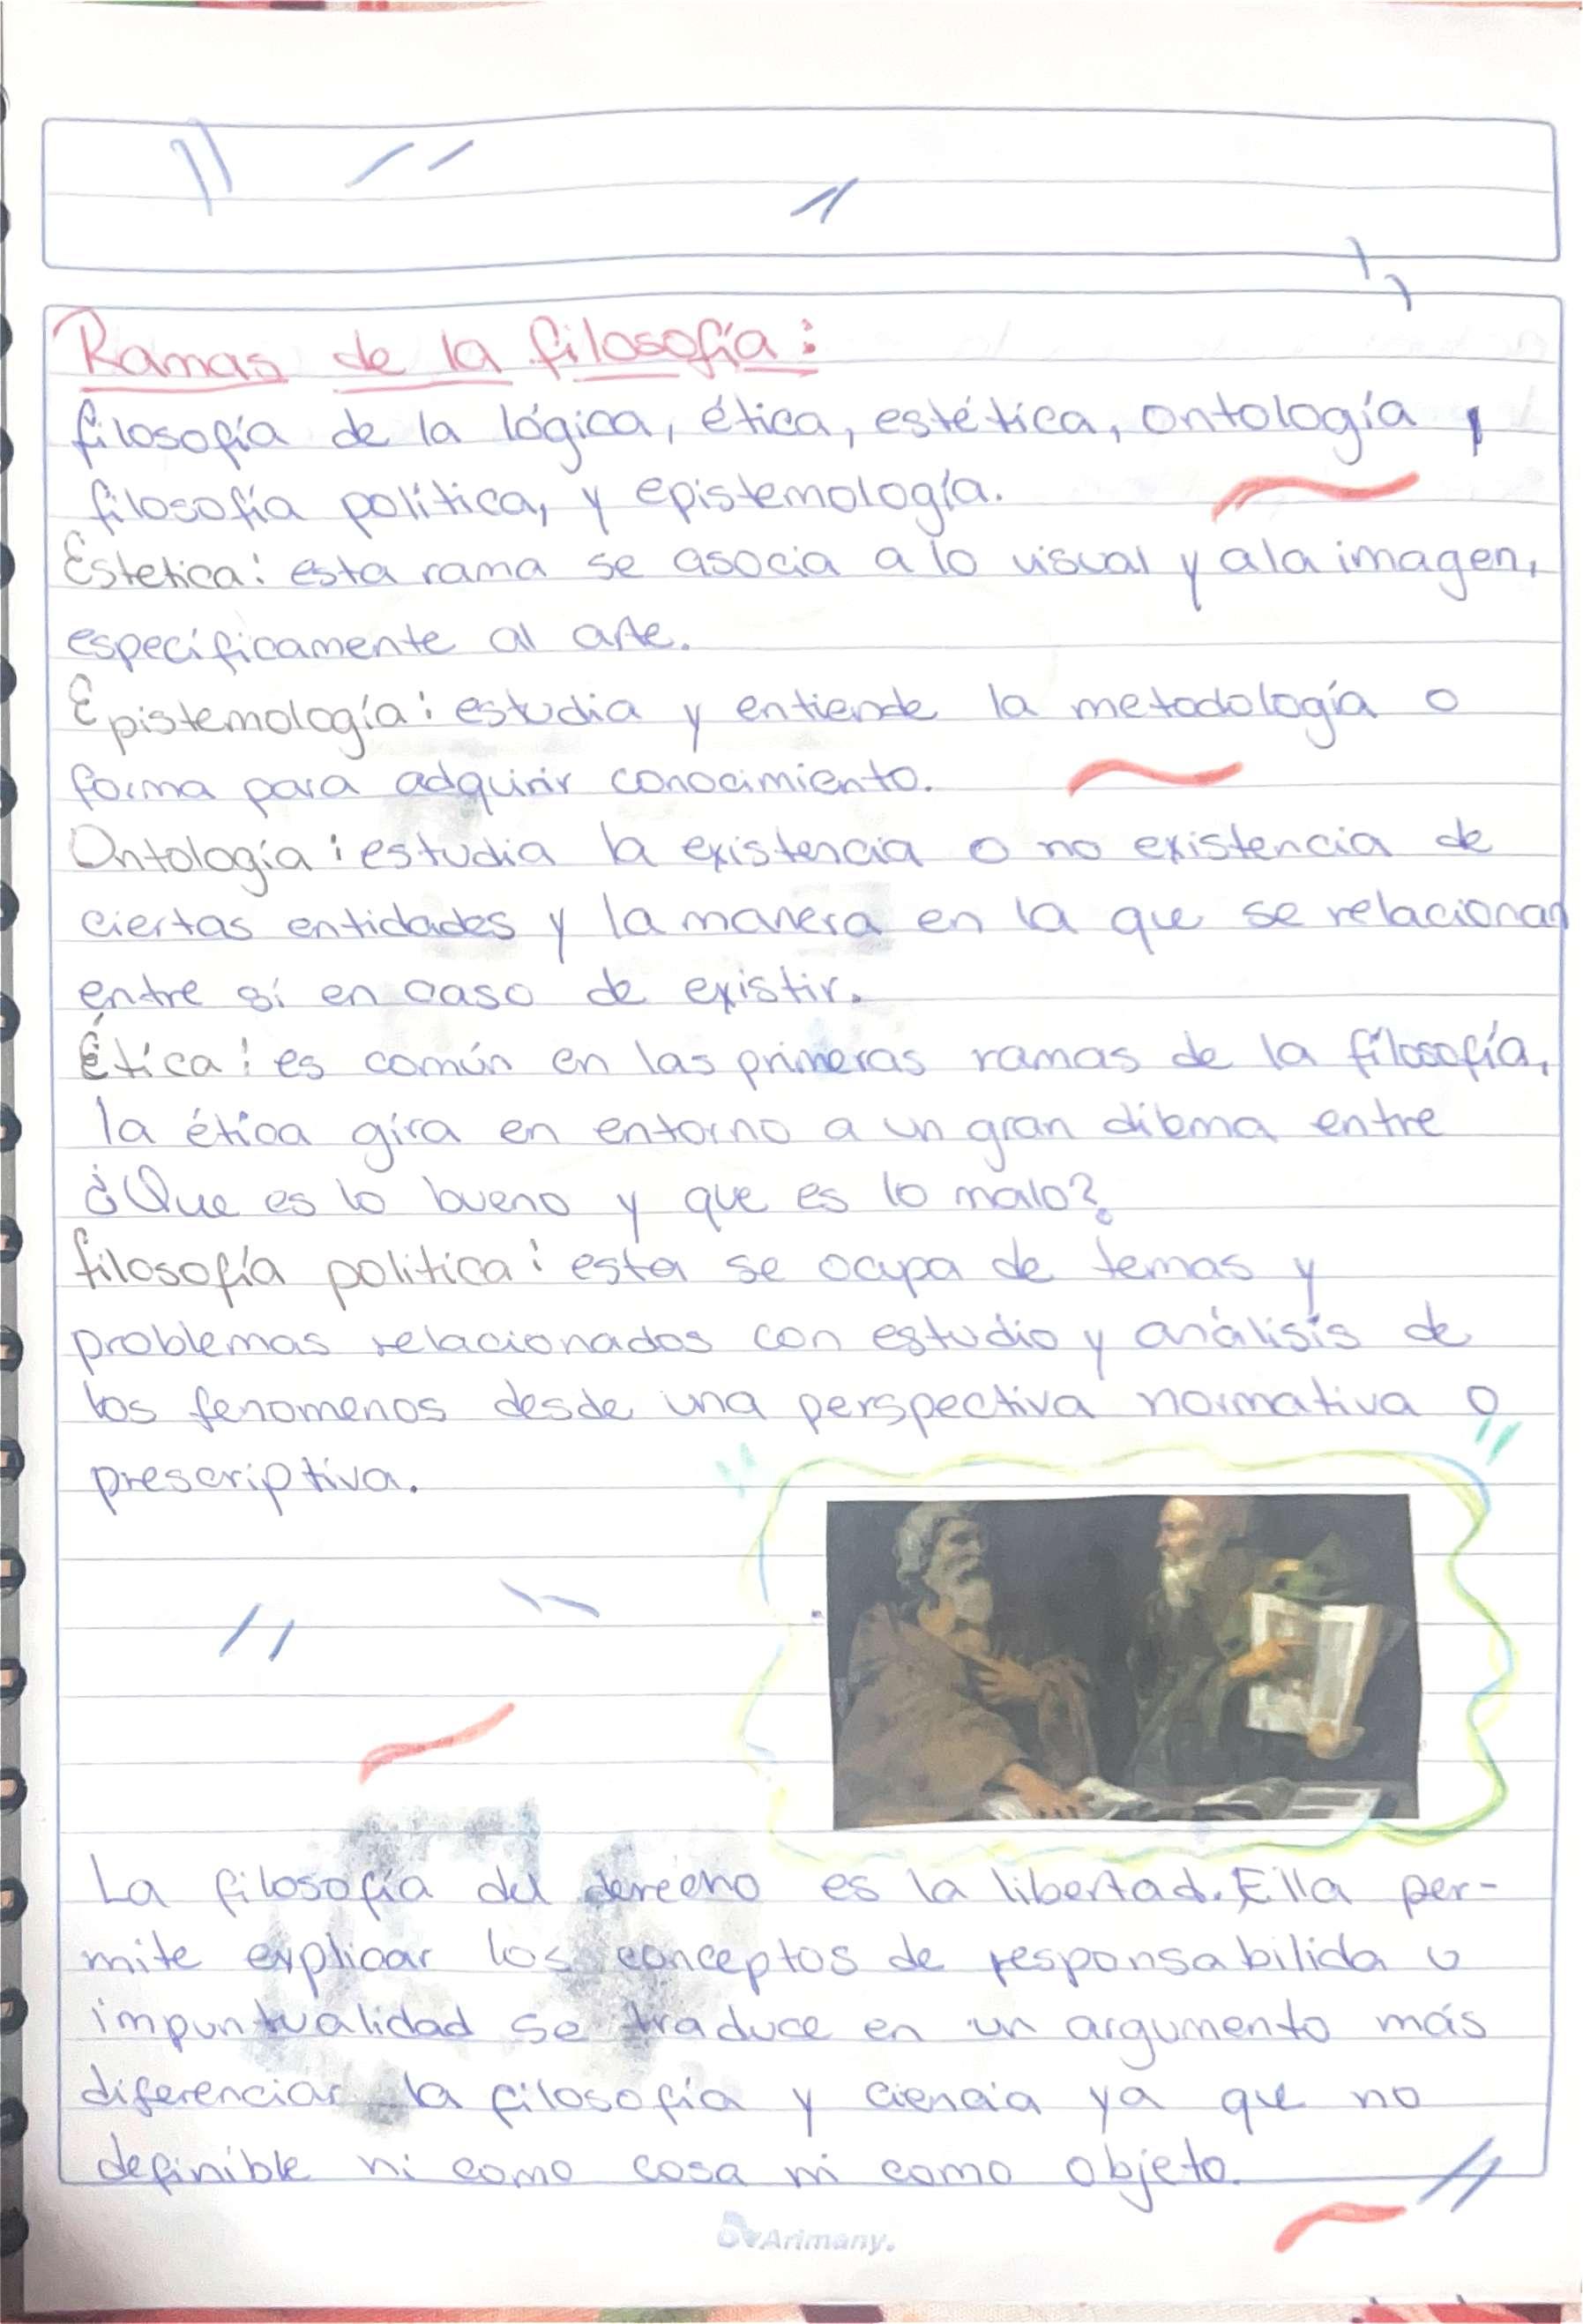 Ramas de la filosofía:
filosofía de la lógica, ética, estética, ontología,
filosofía política, y epistemología.
Estetica: esta rama se asocia a lo visual y a la imagen,
específicamente al arte.
Epistemología: estudia y entiende la metodología o
forma para adquirir conocimiento.
Ontología: estudia la existencia o no existencia de
ciertas entidades y la manera en la que se relacionan
entre sí en caso de existir.
Ética: es común en las primeras ramas de la filosofía,
la ética gira en entorno a un gran dilema entre
¿Que es lo bueno y que es lo malo?
filosofía politica: esta se ocupa de temas y
problemas relacionados con estudio y análisis de
los fenomenos desde una perspectiva normativa o
prescriptiva.
La filosofía del derecho es la libertad. Ella per-
mite explicar los conceptos de responsabilida u
impuntualidad se traduce en un argumento más
diferenciar la filosofía y ciencia ya que no
definible ni como cosa ni como objeto.
Arimany.